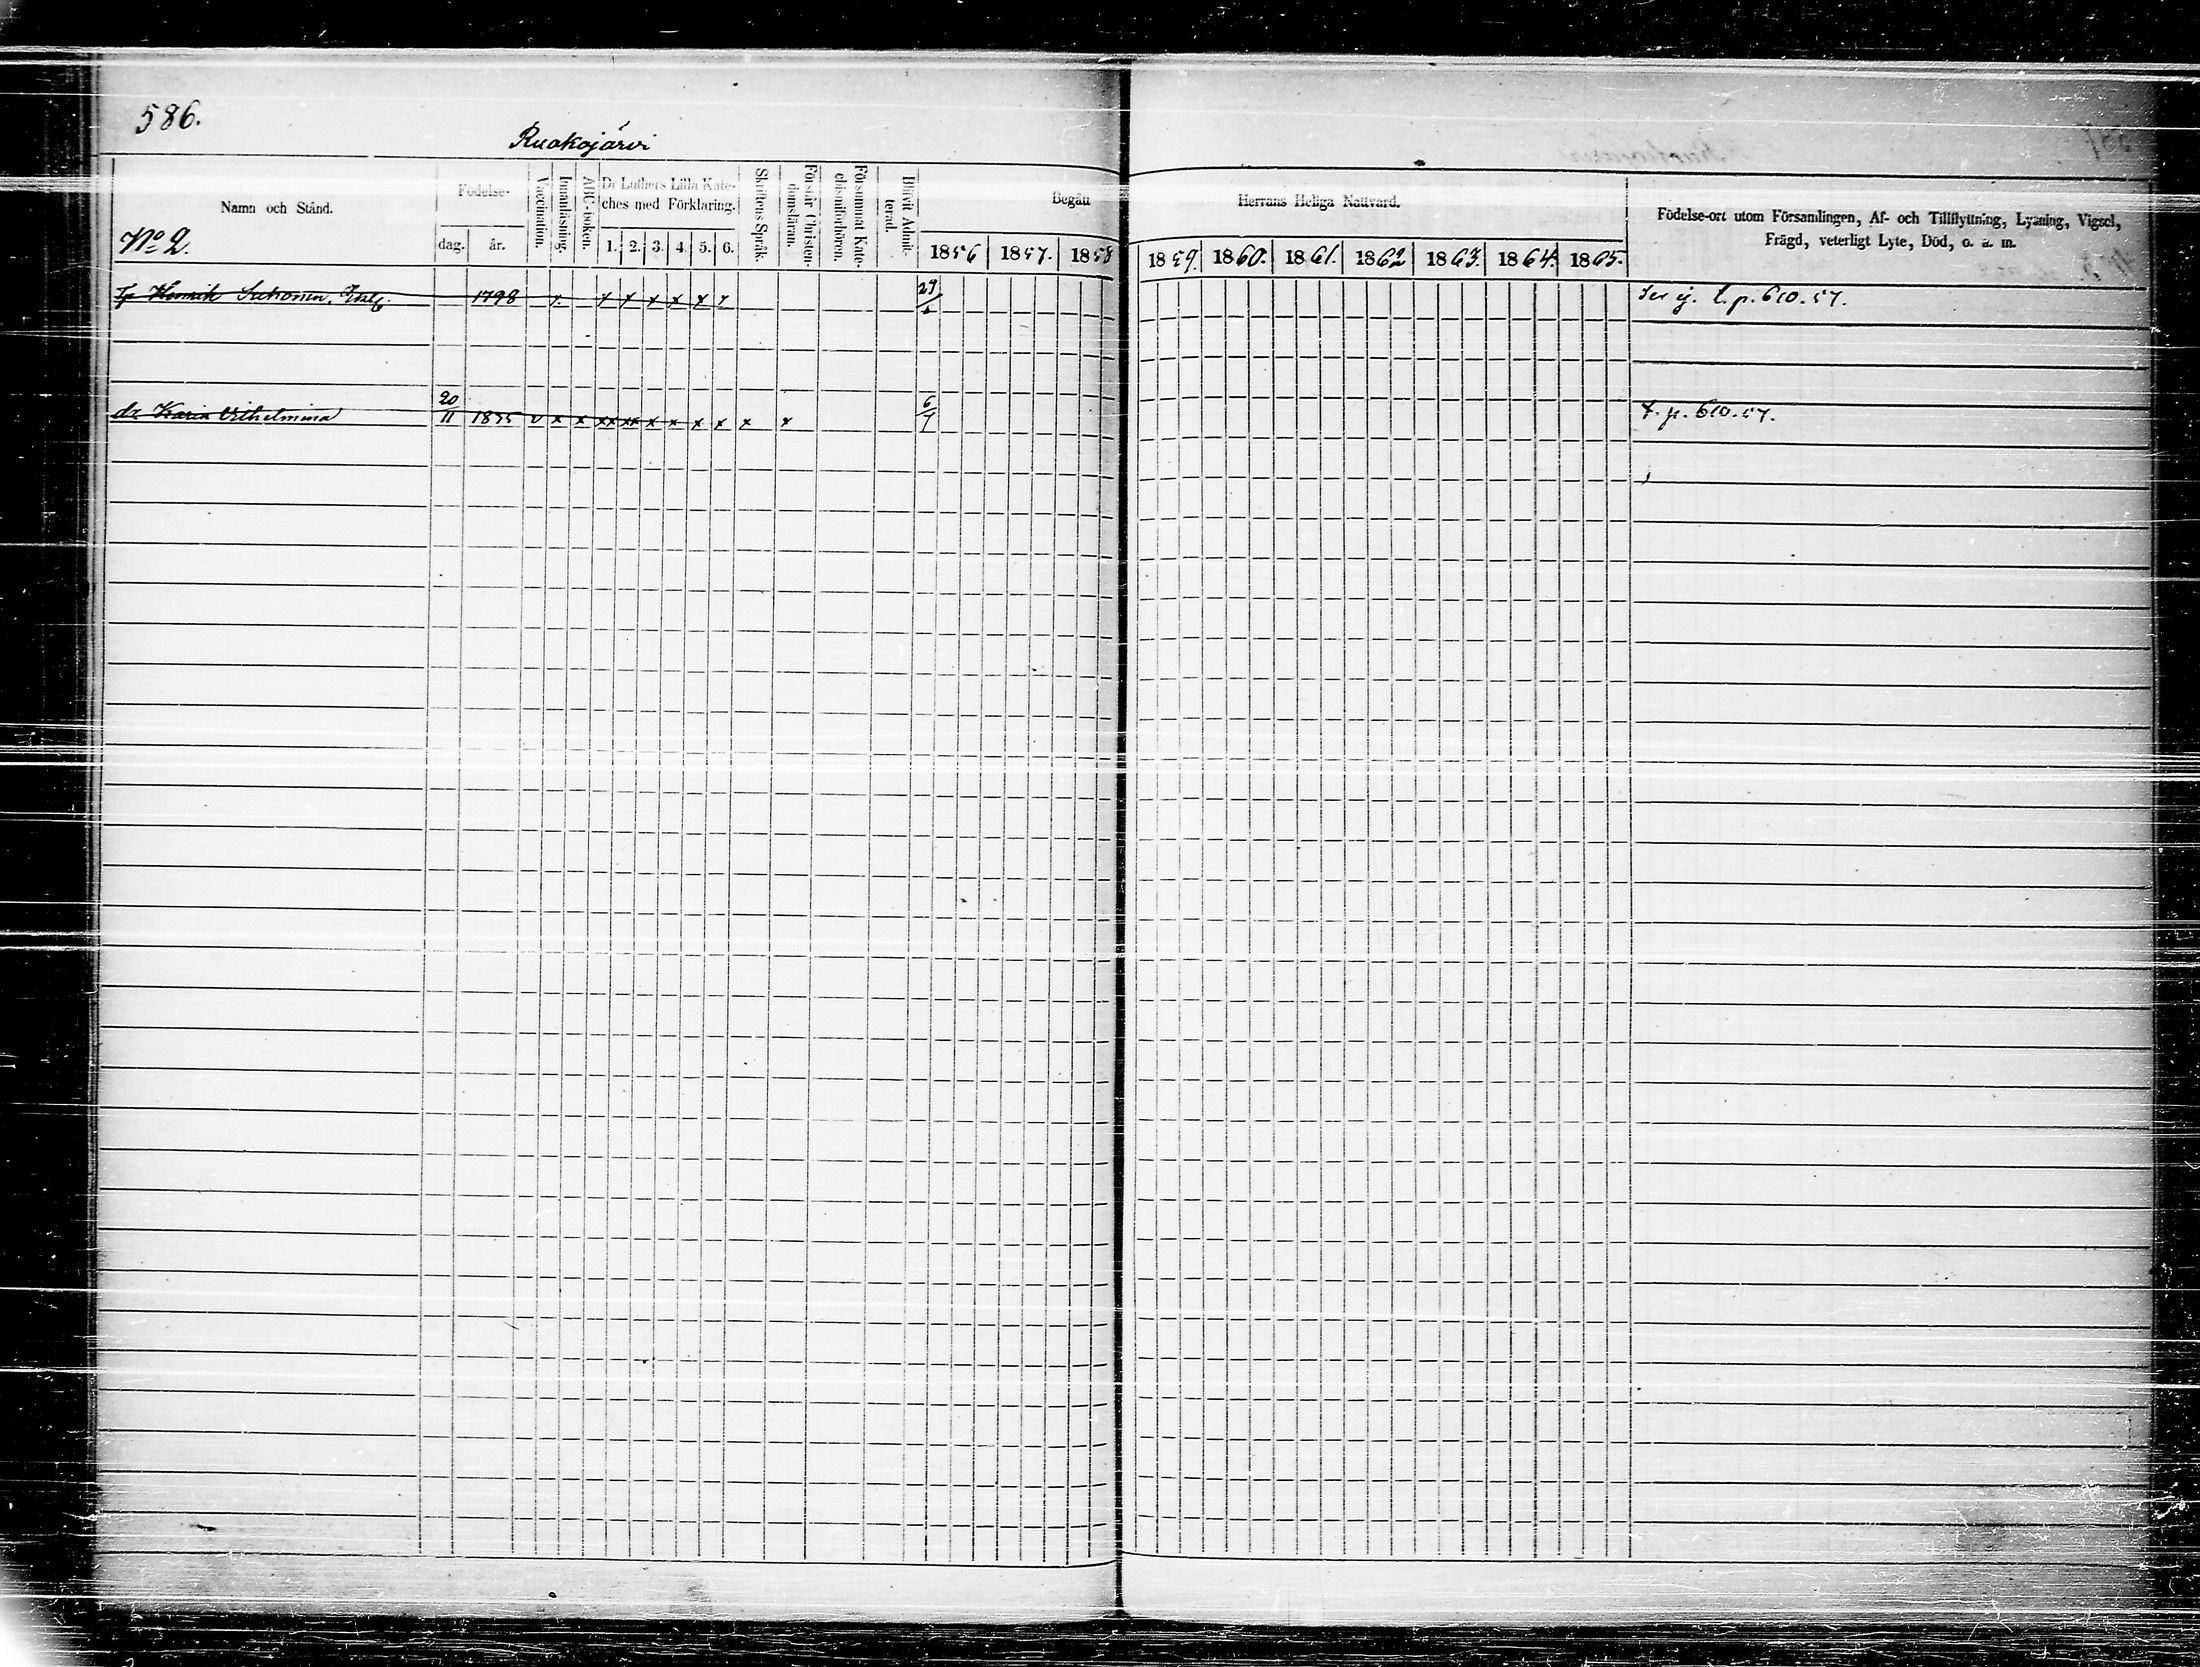 586.
Ruokojärvi
Namn och Stånd.
Födelse-
dag.
år.
Vaccination.
Innanläsning.
ABC-boken.
Dr Luthers Lilla Kate-
ches med Förklaring.
1. 2. 3. 4. 5. 6.
Skriftens Språk.
Förstår Christen-
domsläran.
Försummat Kate-
chismiförhören.
Blifvit Admit-
terad.
Begått Herrans Heliga Nattvard.
1856 1857. 1858 1859. 1860. 1861. 1862 1863. 1864. 1865.
Födelse-ort utom Församlingen, Af- och Tillflyttning, Lysning, Vigsel,
Frägd, veterligt Lyte, Död, o. a. m.
No 2.
Henrik 1798 x x x x x x x 29/6 Ser ej. t. p. 610. 57.
dr Karin Wilhelmina 20/11 1835 v x x xx xx x x x x x x 6/7 t. p. 610. 57.